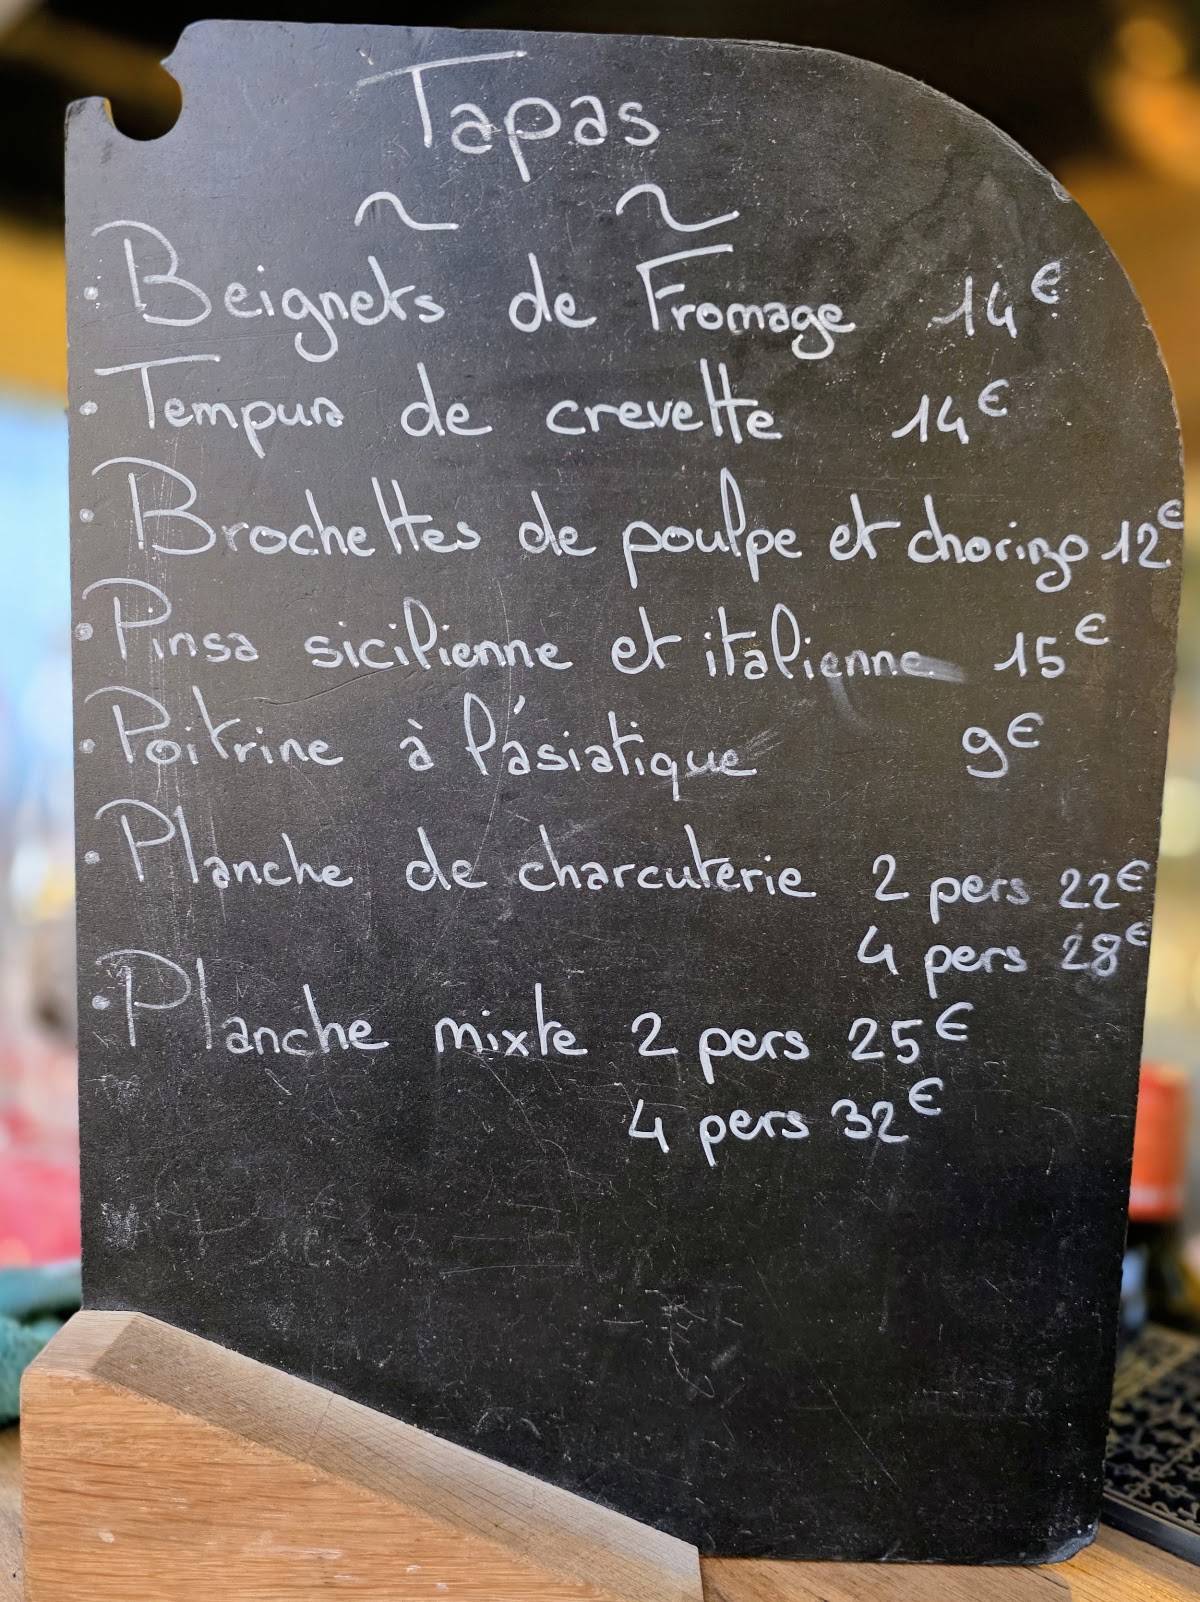 Tapas
~ ~
• Beignets de Fromage 14€
• Tempura de crevette 14€
• Brochettes de poulpe et chorizo 12€
• Pinsa sicilienne et italienne 15€
• Poitrine à l'asiatique 9€
• Planche de charcuterie 2 pers 22€
4 pers 28€
• Planche mixte 2 pers 25€
4 pers 32€